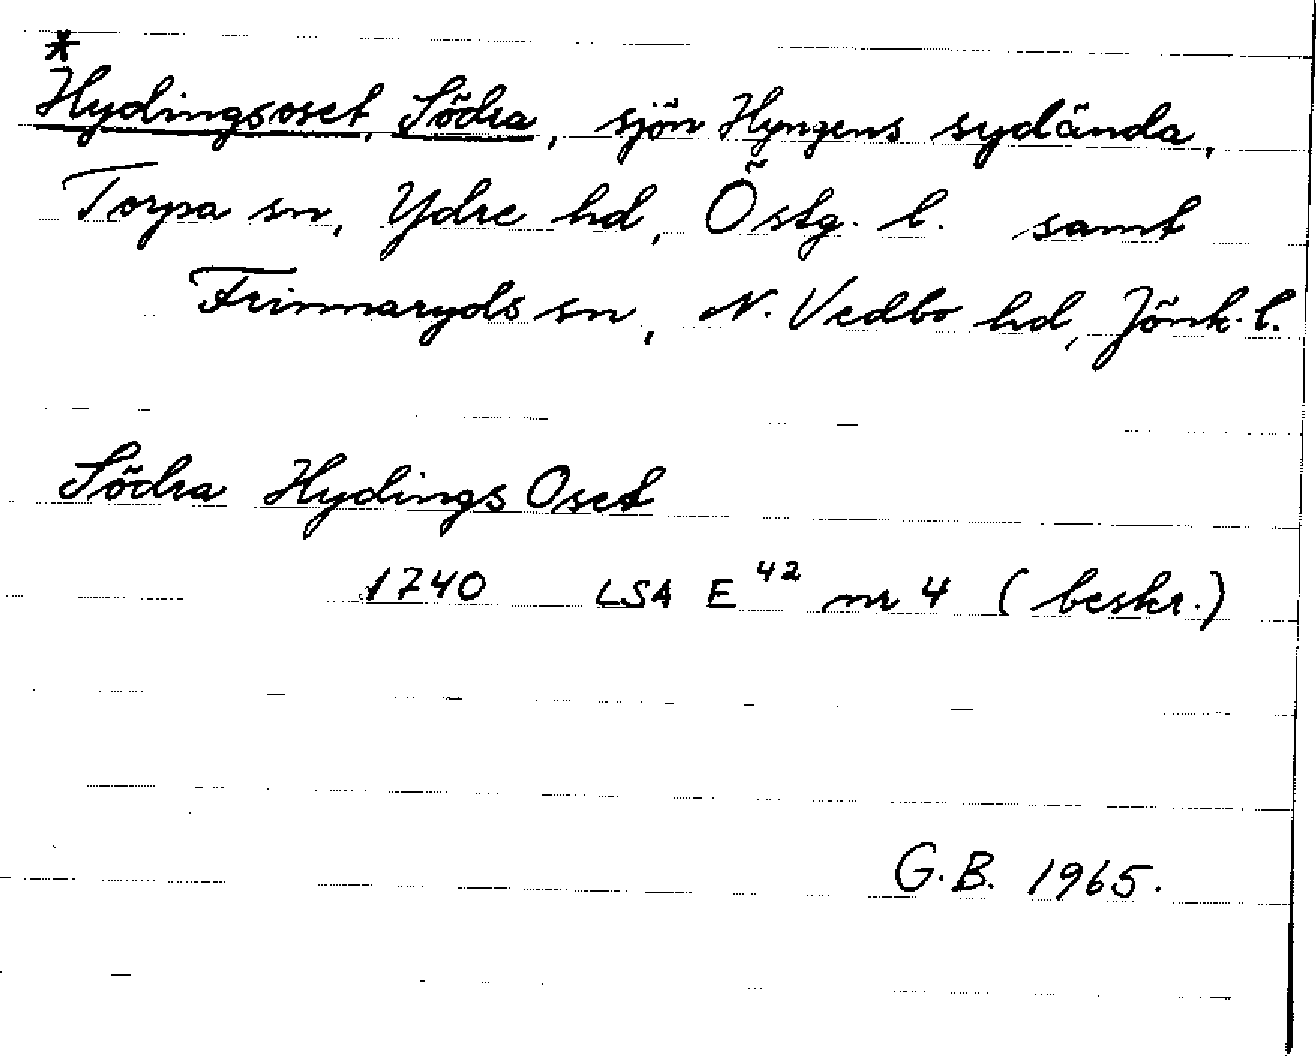 *
Hydingsoset, Södra, sjön Hyngens sydända,
Torpa sn, Ydre hd, Östg. l. samt
Frinnaryds sn, N. Vedbo hd, Jönk. l.
Södra Hydings Oset
1740 LSA E⁴² nr 4 (beskr.)
G.B. 1965.